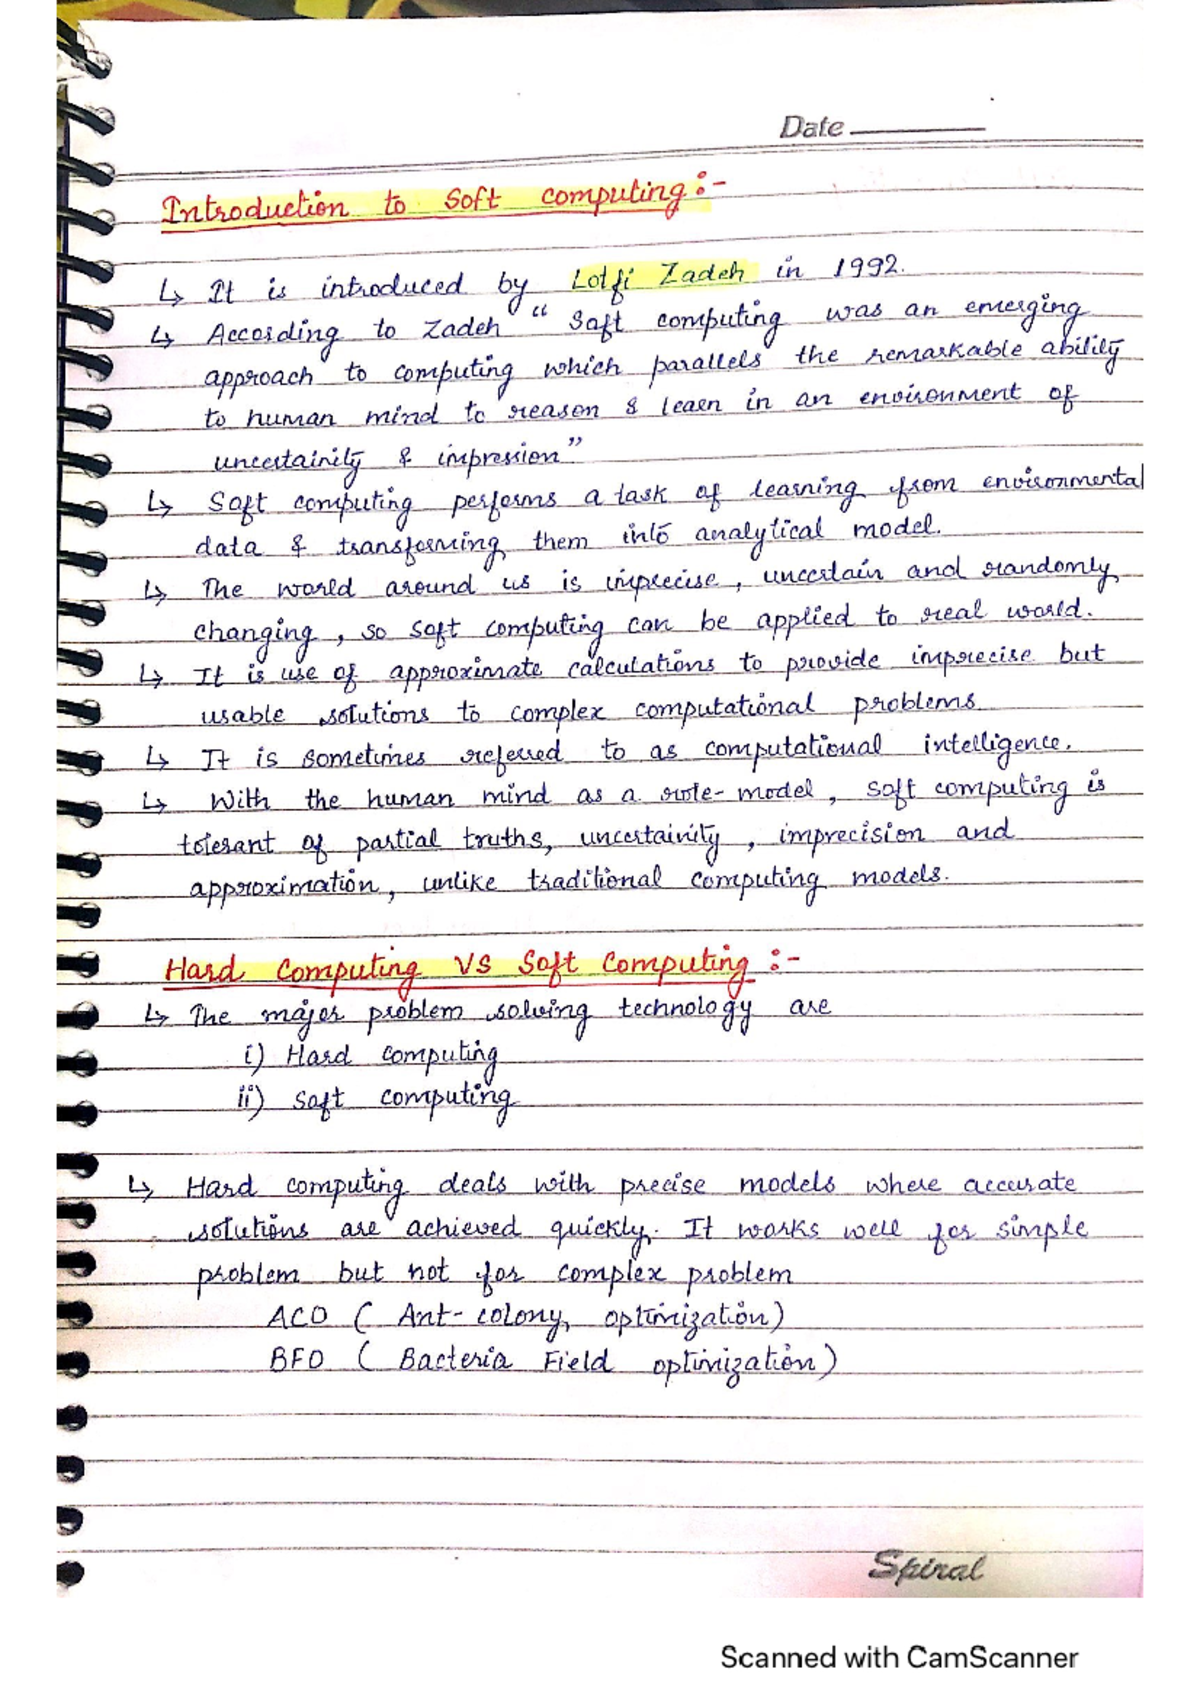 Date
Introduction to Soft computing :-
↳ It is introduced by Lotfi Zadeh in 1992.
↳ According to Zadeh “ Soft computing was an emerging
approach to computing which parallels the remarkable ability
to human mind to reason & learn in an environment of
uncertainity & impression ”
↳ Soft computing performs a task of learning from environmental
data & transforming them into analytical model.
↳ The world around us is imprecise , uncertain and randomly
changing , so soft computing can be applied to real world.
↳ It is use of approximate calculations to provide imprecise but
usable solutions to complex computational problems
↳ It is sometimes referred to as computational intelligence.
↳ With the human mind as a role-model , soft computing is
tolerant of partial truths, uncertainity , imprecision and
approximation , unlike traditional computing models.
Hard Computing VS Soft Computing :-
↳ The major problem solving technology are
i) Hard computing
ii) soft computing
↳ Hard computing deals with precise models where accurate
solutions are achieved quickly. It works well for simple
problem but not for complex problem
ACO ( Ant-colony optimization)
BFO ( Bacteria Field optimization)
Spiral
Scanned with CamScanner